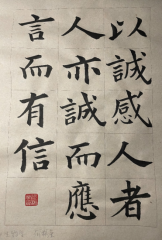 以誠感人者
人亦誠而應
言而有信